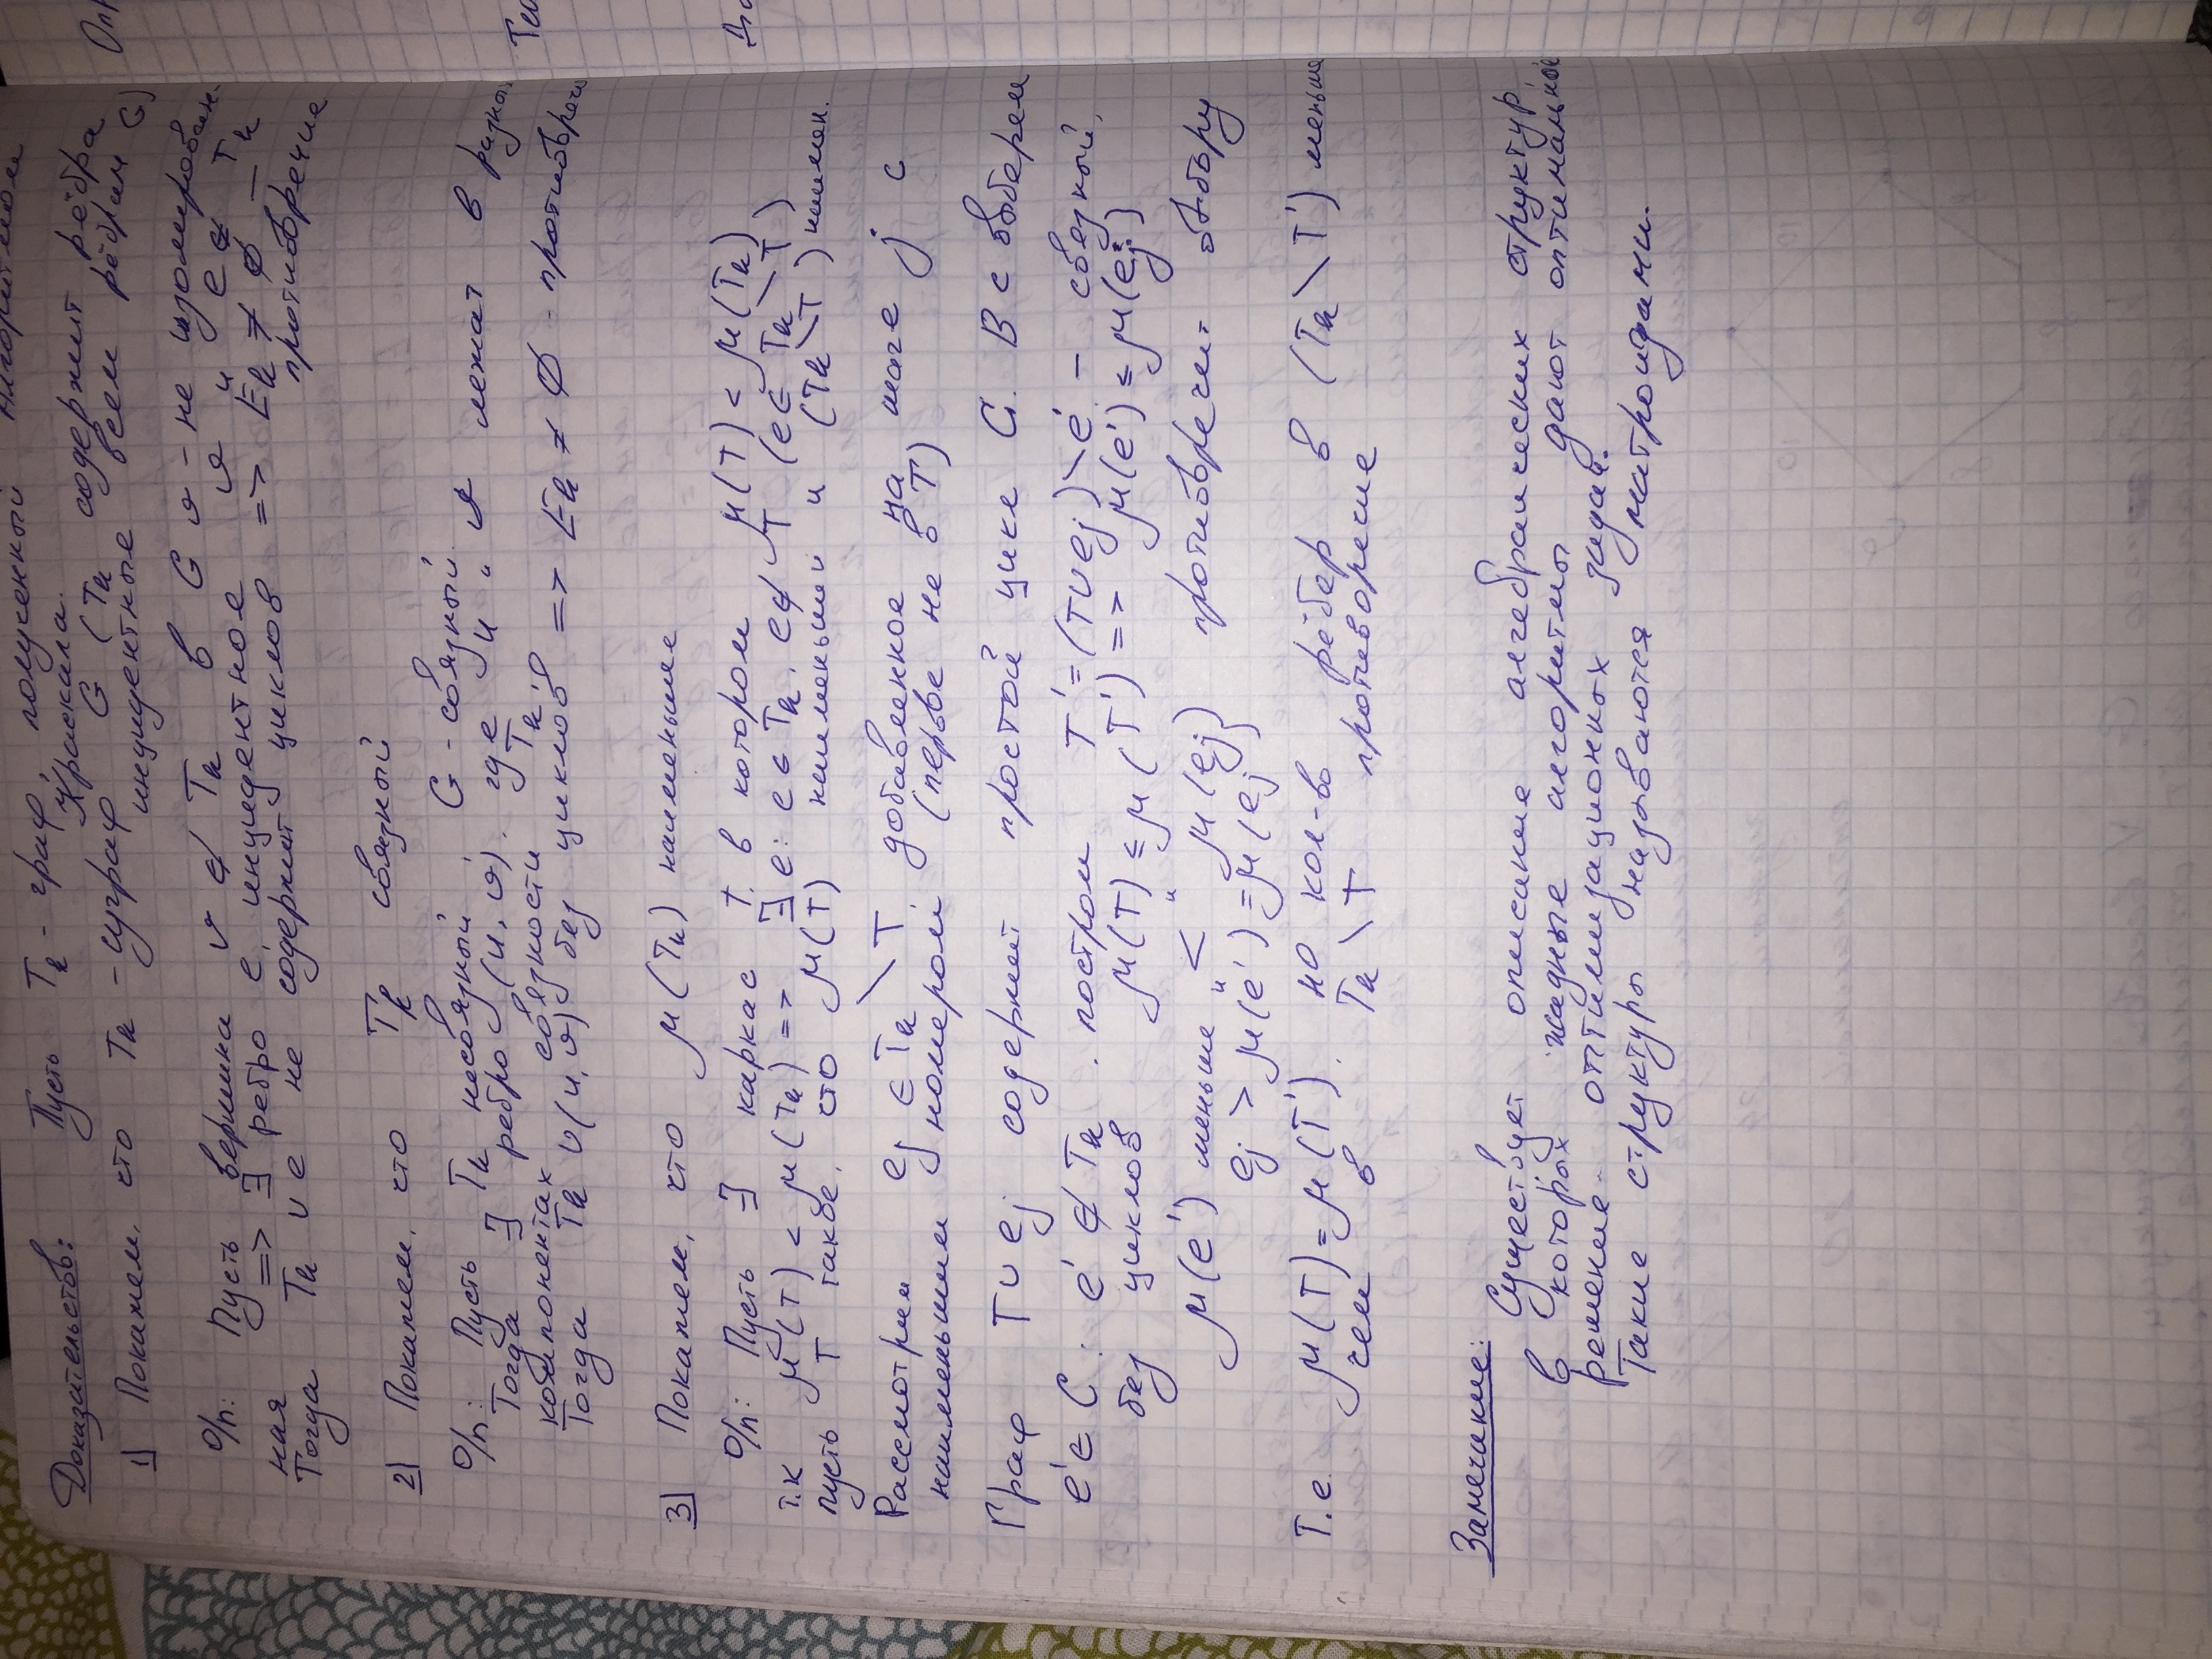 Доказательстов: Пусть Tk - граф, полученный Алгоритмом
Краскала.
1) Покажем, что Tk - суграф G (Tk содержит рёбра
инцидентные всем рёбрам G)
о/п: Пусть вершина v ∉ Tk в G v - не изолирован-
ная => ∃ ребро e, инцидентное v и e ∉ Tk
Тогда Tk ∪ e не содержит циклов => Ek ≠ ∅ —
противоречие
2) Покажем, что Tk связный
о/п: Пусть Tk несвязный, G - связный.
Тогда ∃ ребро (u, v), где u и v лежат в разных
компонентах связности Tk.
Тогда Tk ∪ (u, v) без циклов => Ek ≠ ∅ - противореч
3) Покажем, что μ(Tk) наименьшее
о/п: Пусть ∃ каркас T, в котором μ(T) < μ(Tk)
т.к μ(T) < μ(Tk) => ∃ e: e ∈ Tk, e ∉ T (e ∈ Tk \ T)
пусть T такое, что μ(T) наименьший и (Tk \ T) наимен.
Рассмотрим ej ∈ Tk \ T, добавленное на шаге j с
наименьшим номером (первое не в T)
Граф T ∪ ej содержит простой цикл C. В C выберем
e' ∈ C : e' ∉ Tk . построим T' = (T ∪ ej) \ e' - связный,
без циклов μ(T) ≤ μ(T') => μ(e') ≤ μ(ej)
μ(e') меньше "<" μ(ej) противоречит отбору
ej > μ(e') = μ(ej)
Т.е. μ(T) = μ(T'), но кол-во рёбер в (Tk \ T') меньше
чем в Tk \ T противоречие
Замечание:
Существует описание алгебраических структур,
в которых жадные алгоритмы дают оптимальное
решение оптимизационных задач.
Такие структуры называются матроидами.
Опр
Тео
До